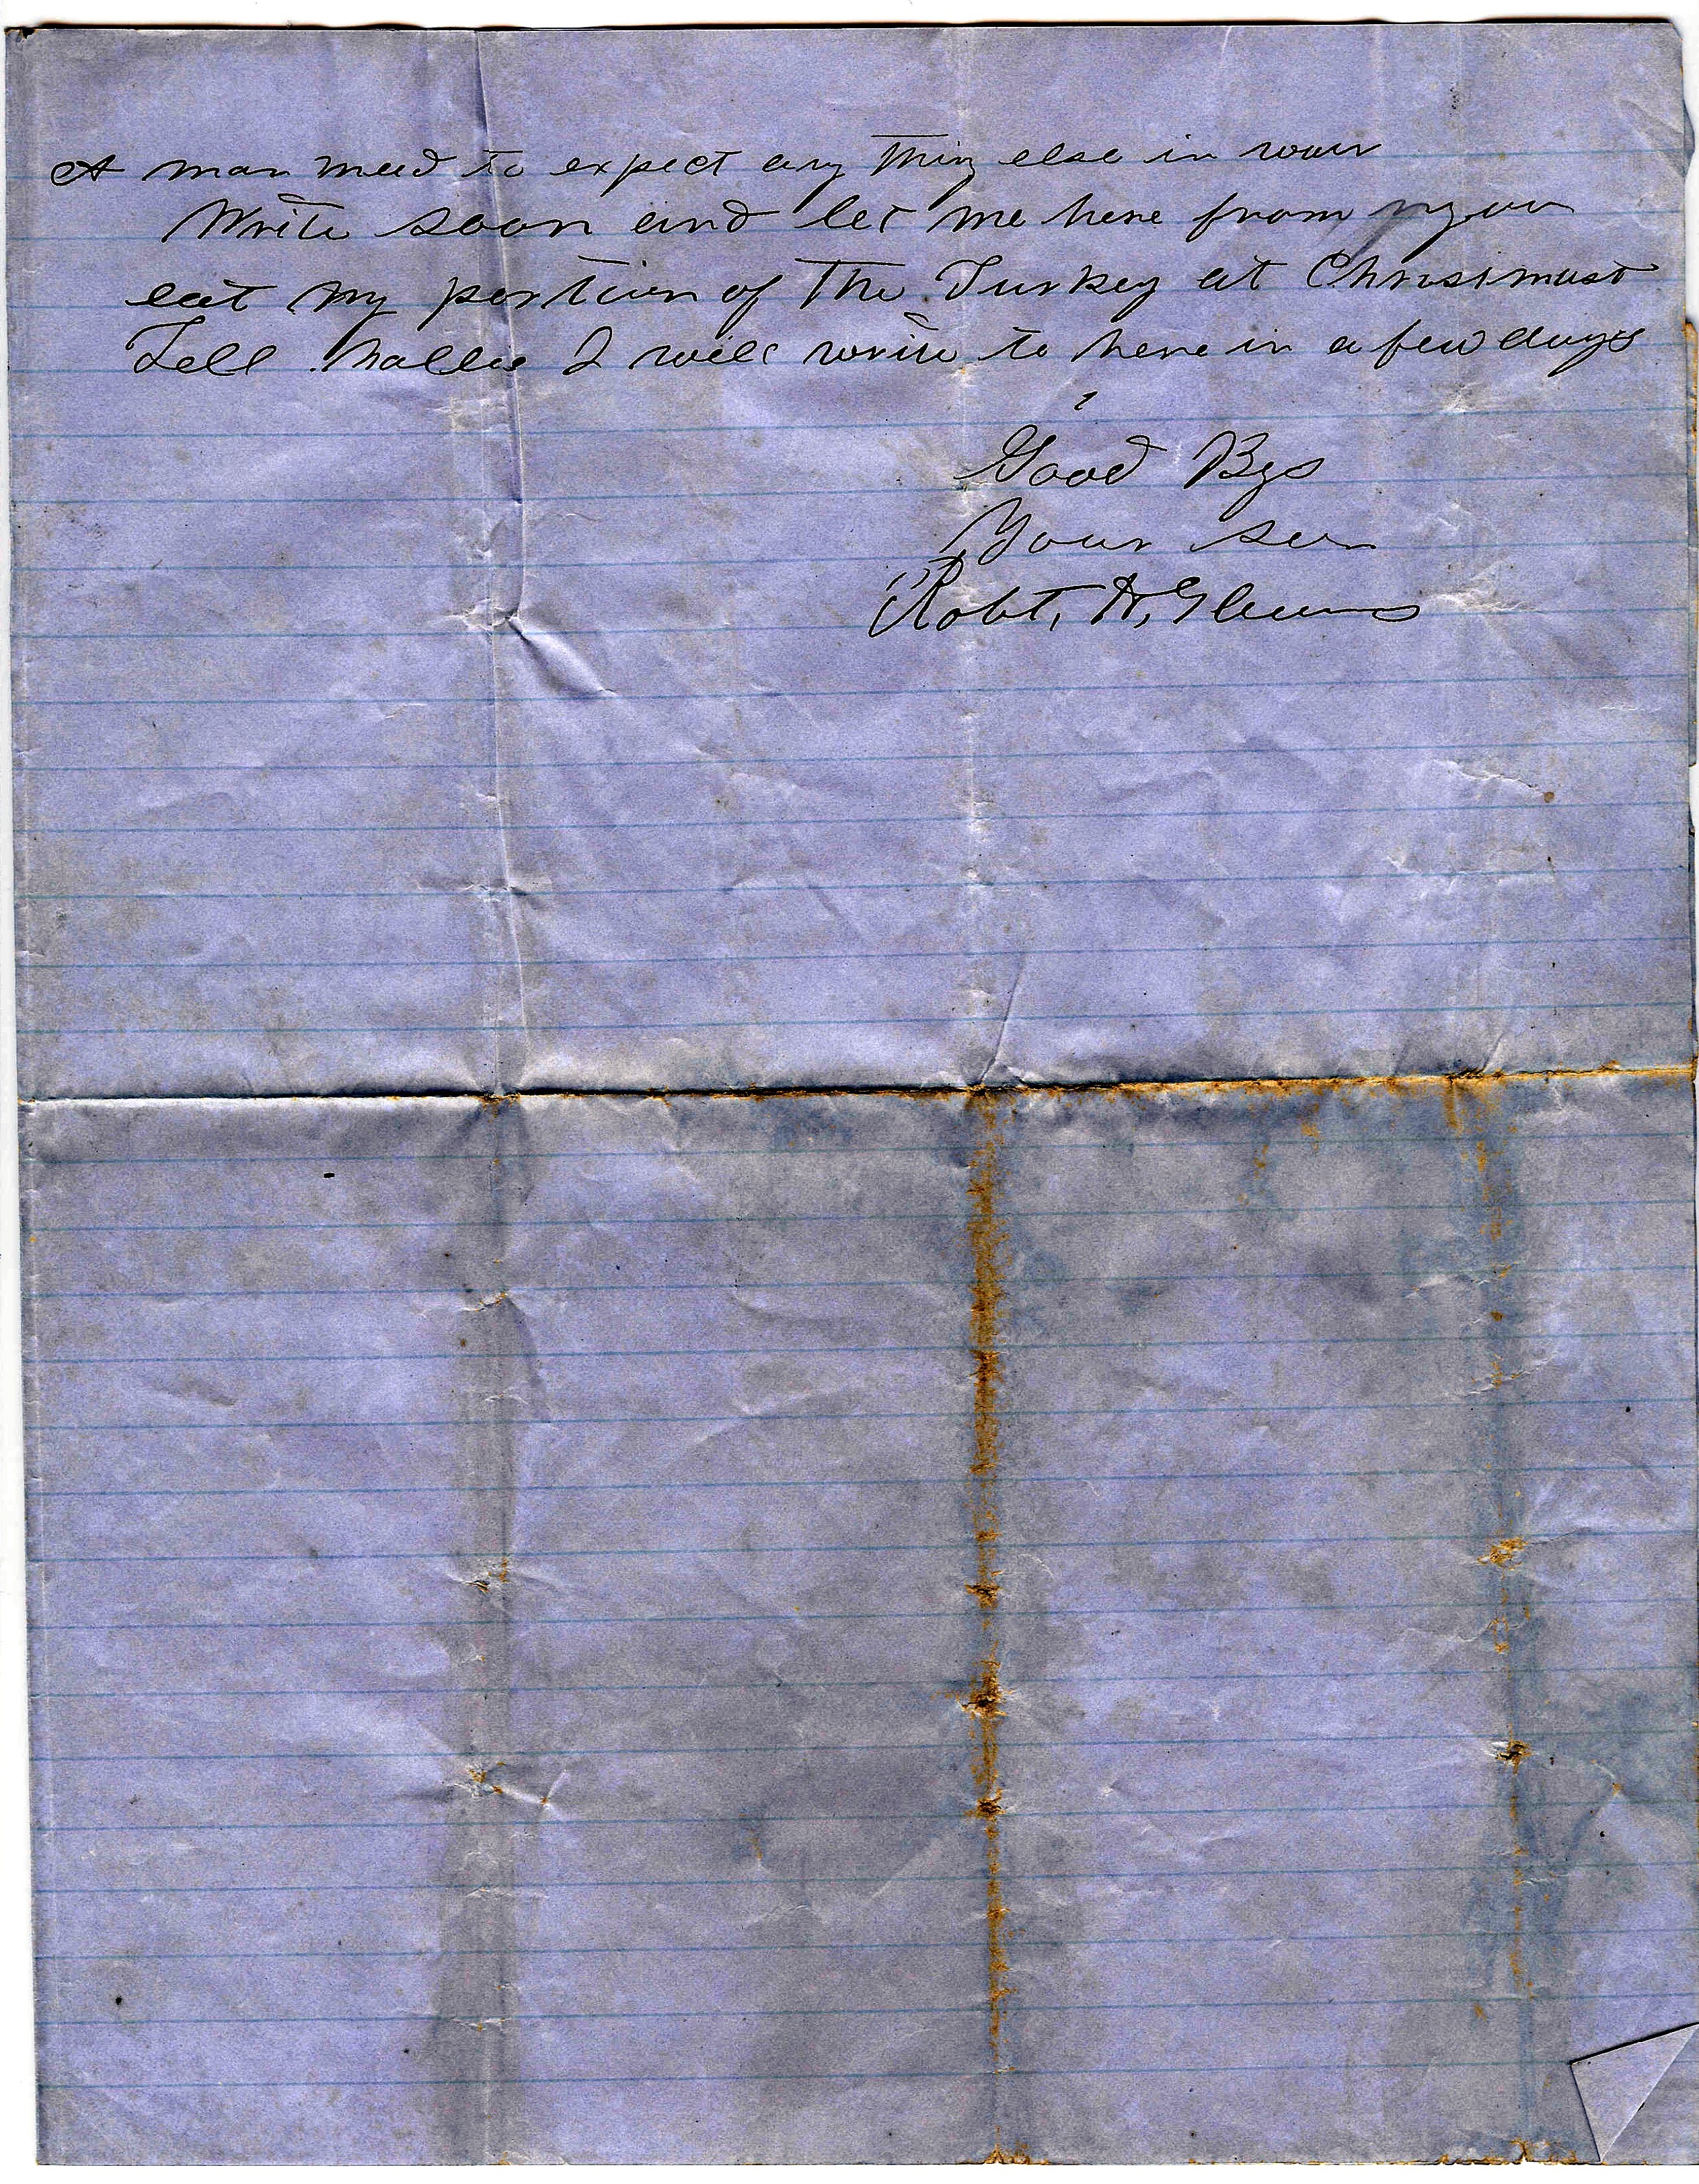 A man need to expect any thing else in war
Write soon and let me here from you
eat my portion of The Turkey at Christmast
Tell Mollie I will write to here in a few days
Good Bye
Your son
Robt, H,